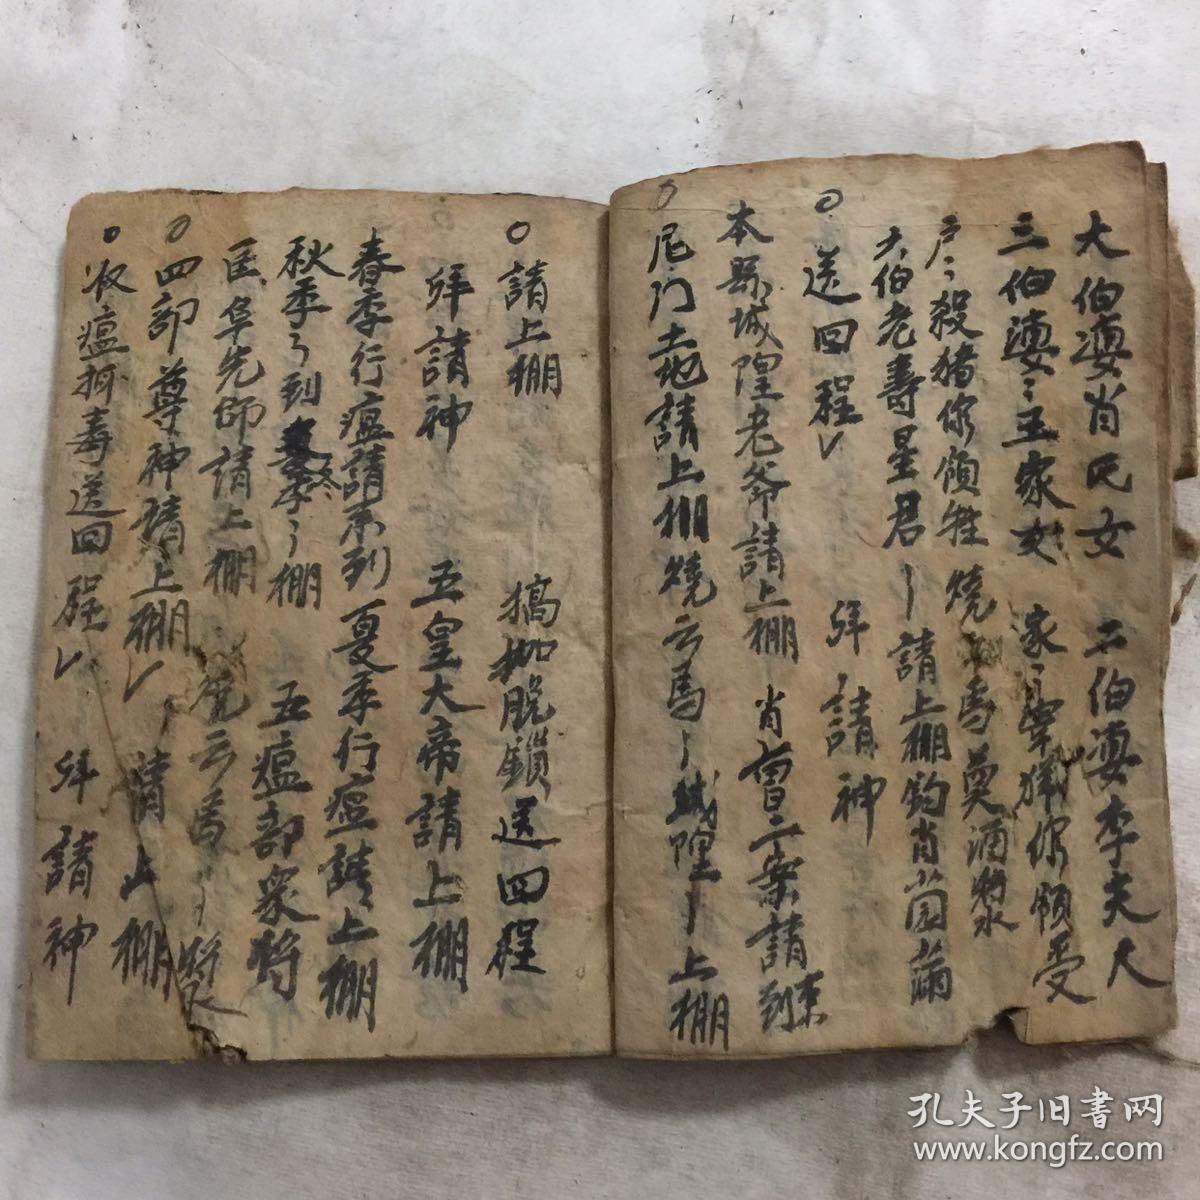 大伯婆肖氏女 二伯婆李夫人
三伯婆〻王家女 家〻宰猪你領受
戶〻殺猪你領牲 燒馬奠酒漿
大伯老壽星君 請上棚
送回程 拜請神
本縣城隍老爺請上棚 肖曹二案請到來
尼门土地請上棚燒云馬 城隍 上棚
請上棚 搞枷脱鎖送回程
拜請神 五皇大帝請上棚
春季行瘟請來到 夏季行瘟請上棚
秋季〻到 冬季〻棚 五瘟部衆將
匡阜先師請上棚 燒云馬 漿
四部尊神請上棚 請上棚
收瘟攝毒送回程 拜請神
孔夫子旧书网
www.kongfz.com